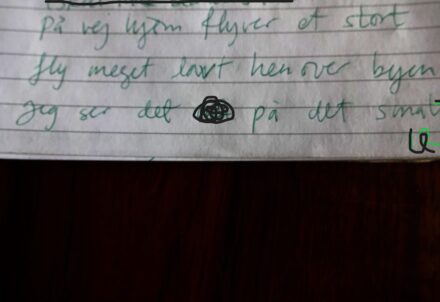 på vej hjem flyver et stort
fly meget lavt hen over byen
Jeg ser det på det